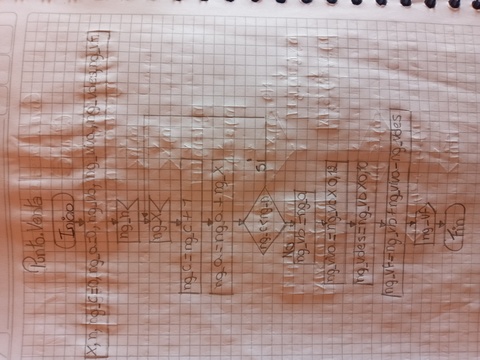 Punto Venta
Inicio
X, n, ng_c=0, ng_a=0, ng_vb, ng_viva, ng_vdes, ng_vf
ng_n
ng_x
ng_c = ng_c + 1
ng_a = ng_a + ng_x
ng_c < ng_n
SI
No
ng_vb = ng_a
ng_viva = ng_vb x 0,12
ng_vdes = ng_vb x 0,10
ng_vf = ng_vb + ng_viva - ng_vdes
ng_vf
Fin